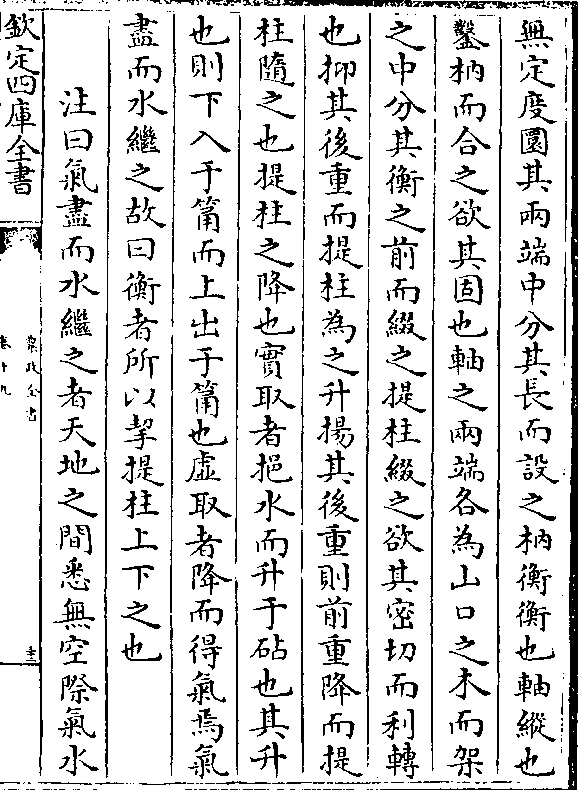 無定度圜其兩端中分其長而設之枘衡衡也軸縱也
鑿枘而合之欲其固也軸之兩端各為山口之木而架
之中分其衡之前而綴之提柱綴之欲其密切而利轉
也抑其後重而提柱為之升揚其後重則前重降而提
柱隨之也提柱之降也實取者挹水而升于砧也其升
也則下入于筩而上出于筩也虛取者降而得氣焉氣
盡而水繼之故曰衡者所以挈提柱上下之也
注曰氣盡而水繼之者天地之間悉無空際氣水
欽定四庫全書
農政全書
卷十九
十三